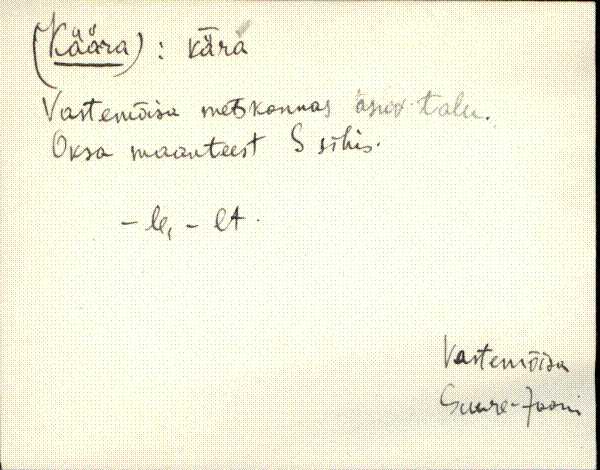 (Käära) : kära
Vastemõisa metskonnas asuv talu.
Oksa maanteest S sihis.
- le, - lt.
Vastemõisa
Suure-Jaani